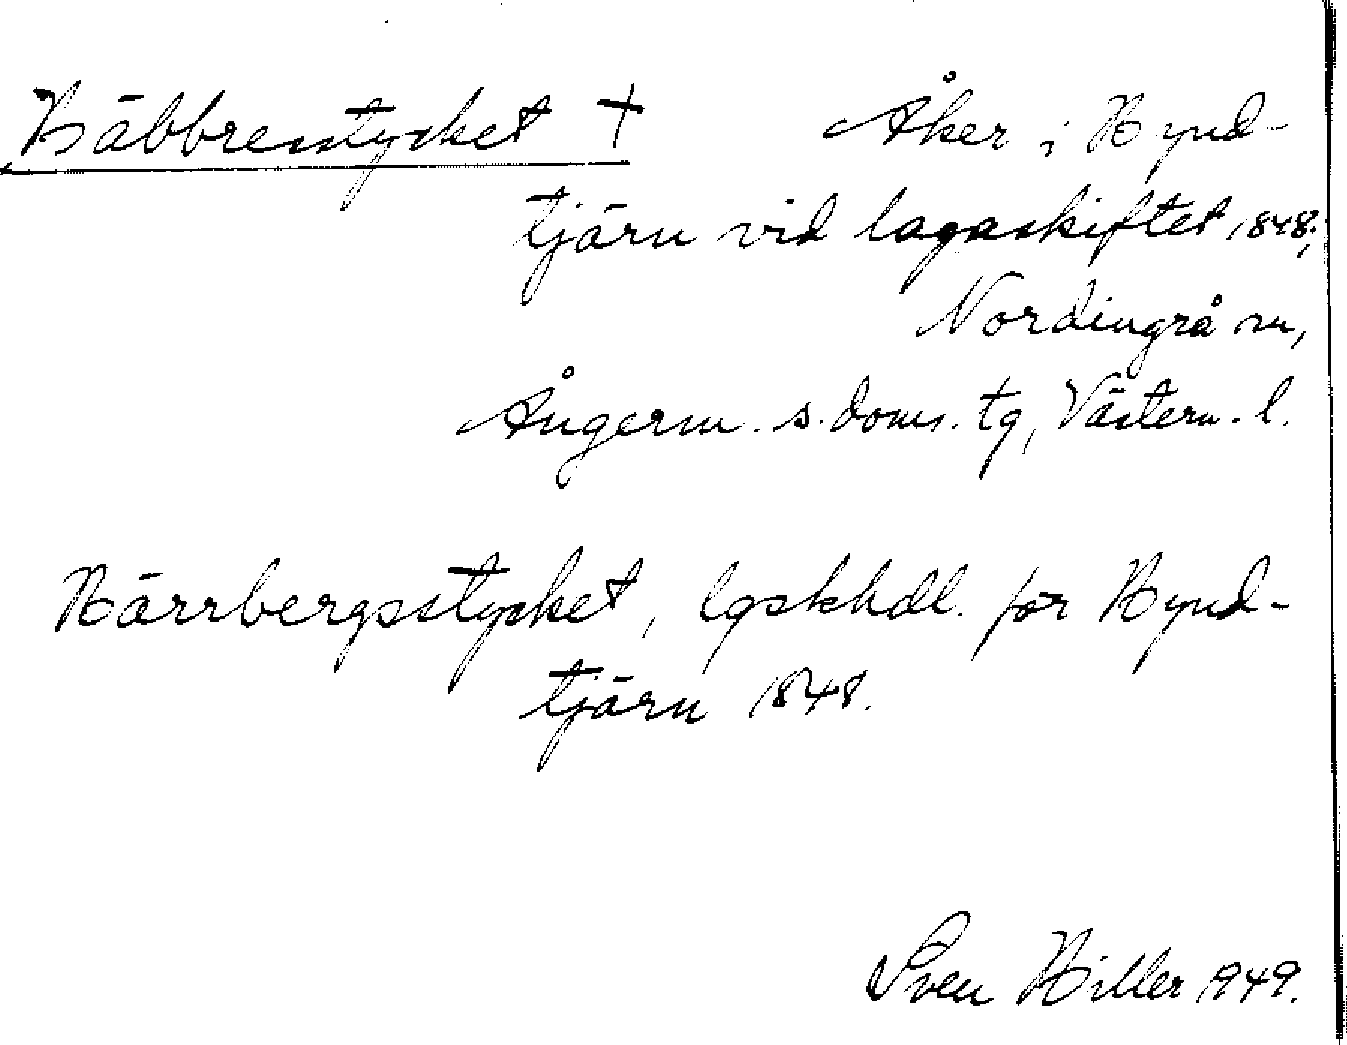 Häbbresstycket †     Åker i Hynd-
tjärn vid lagaskiftet 1848;
Nordingrå sn,
Ångerm. s. doms. tg, Västern. l.
Härrbergsstycket, lgskhdl. för Hynd-
tjärn 1848.
Sven Hiller 1949.